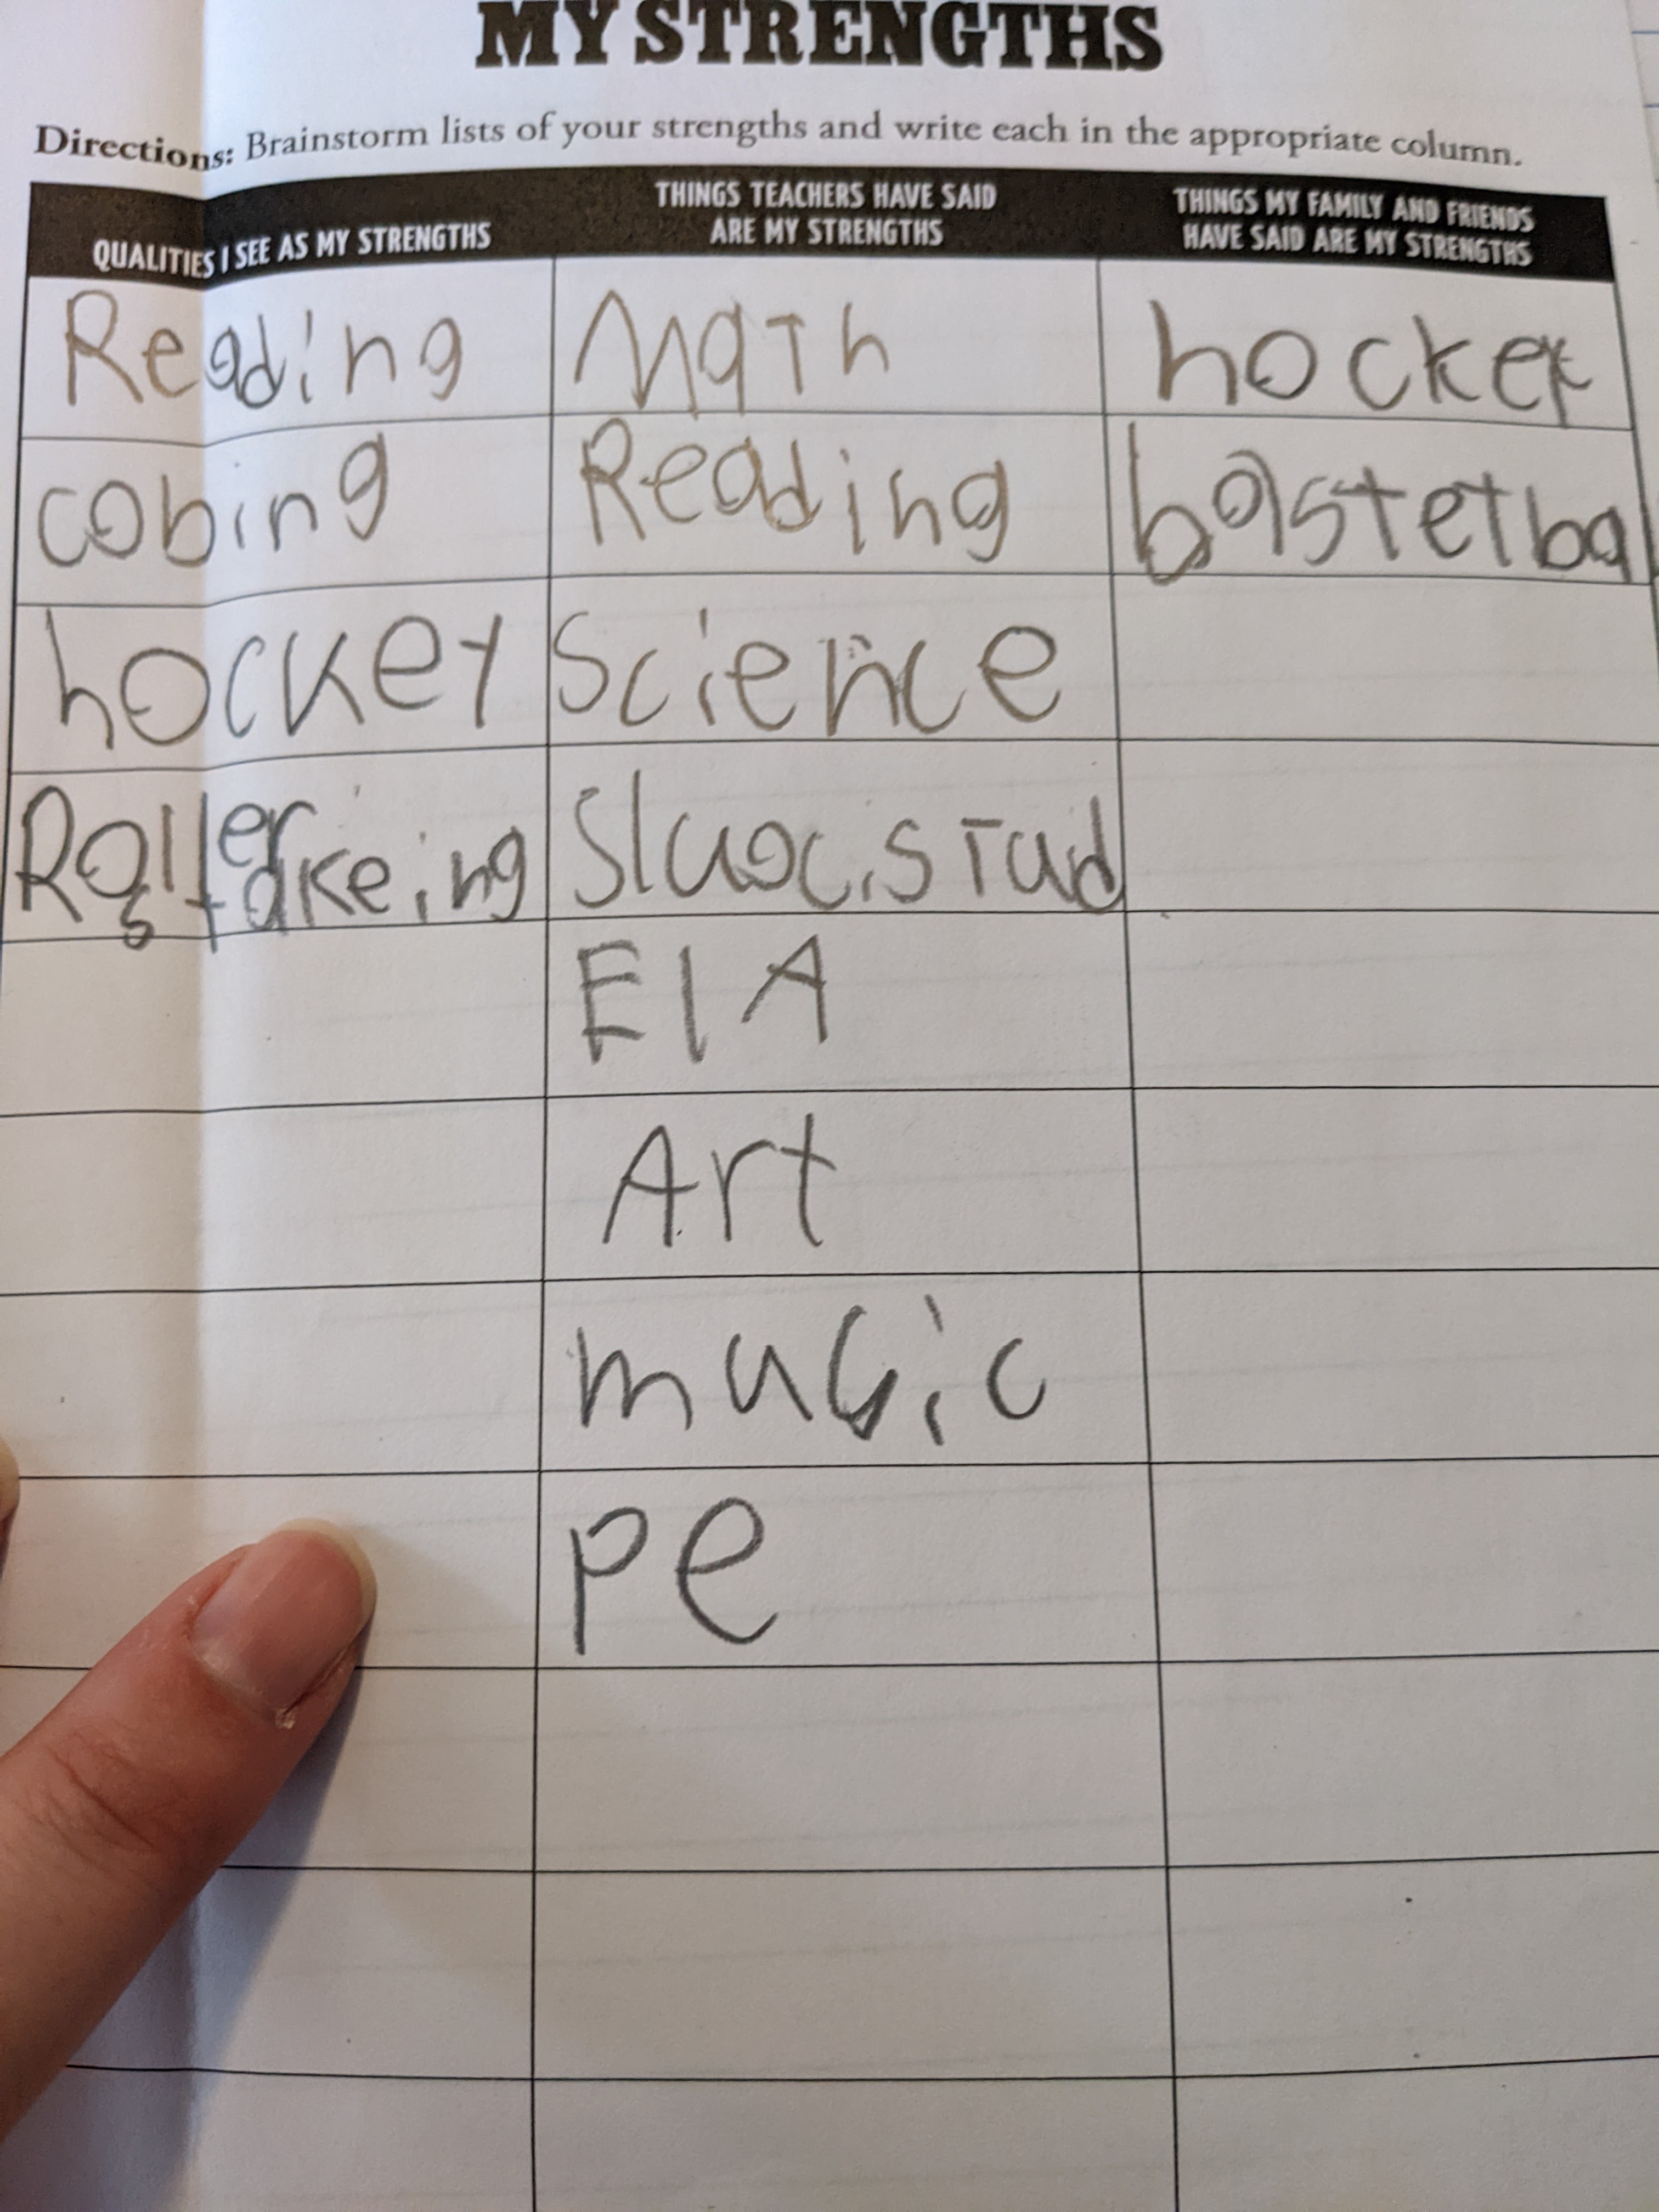 MY STRENGTHS
Directions: Brainstorm lists of your strengths and write each in the appropriate column.
QUALITIES I SEE AS MY STRENGTHS
THINGS TEACHERS HAVE SAID
ARE MY STRENGTHS
THINGS MY FAMILY AND FRIENDS
HAVE SAID ARE MY STRENGTHS
Reading
Math
hockey
cobing
Reading
bastetbal
hockey
Science
Roller
stakeing
Sluoc.stud
ElA
Art
music
pe